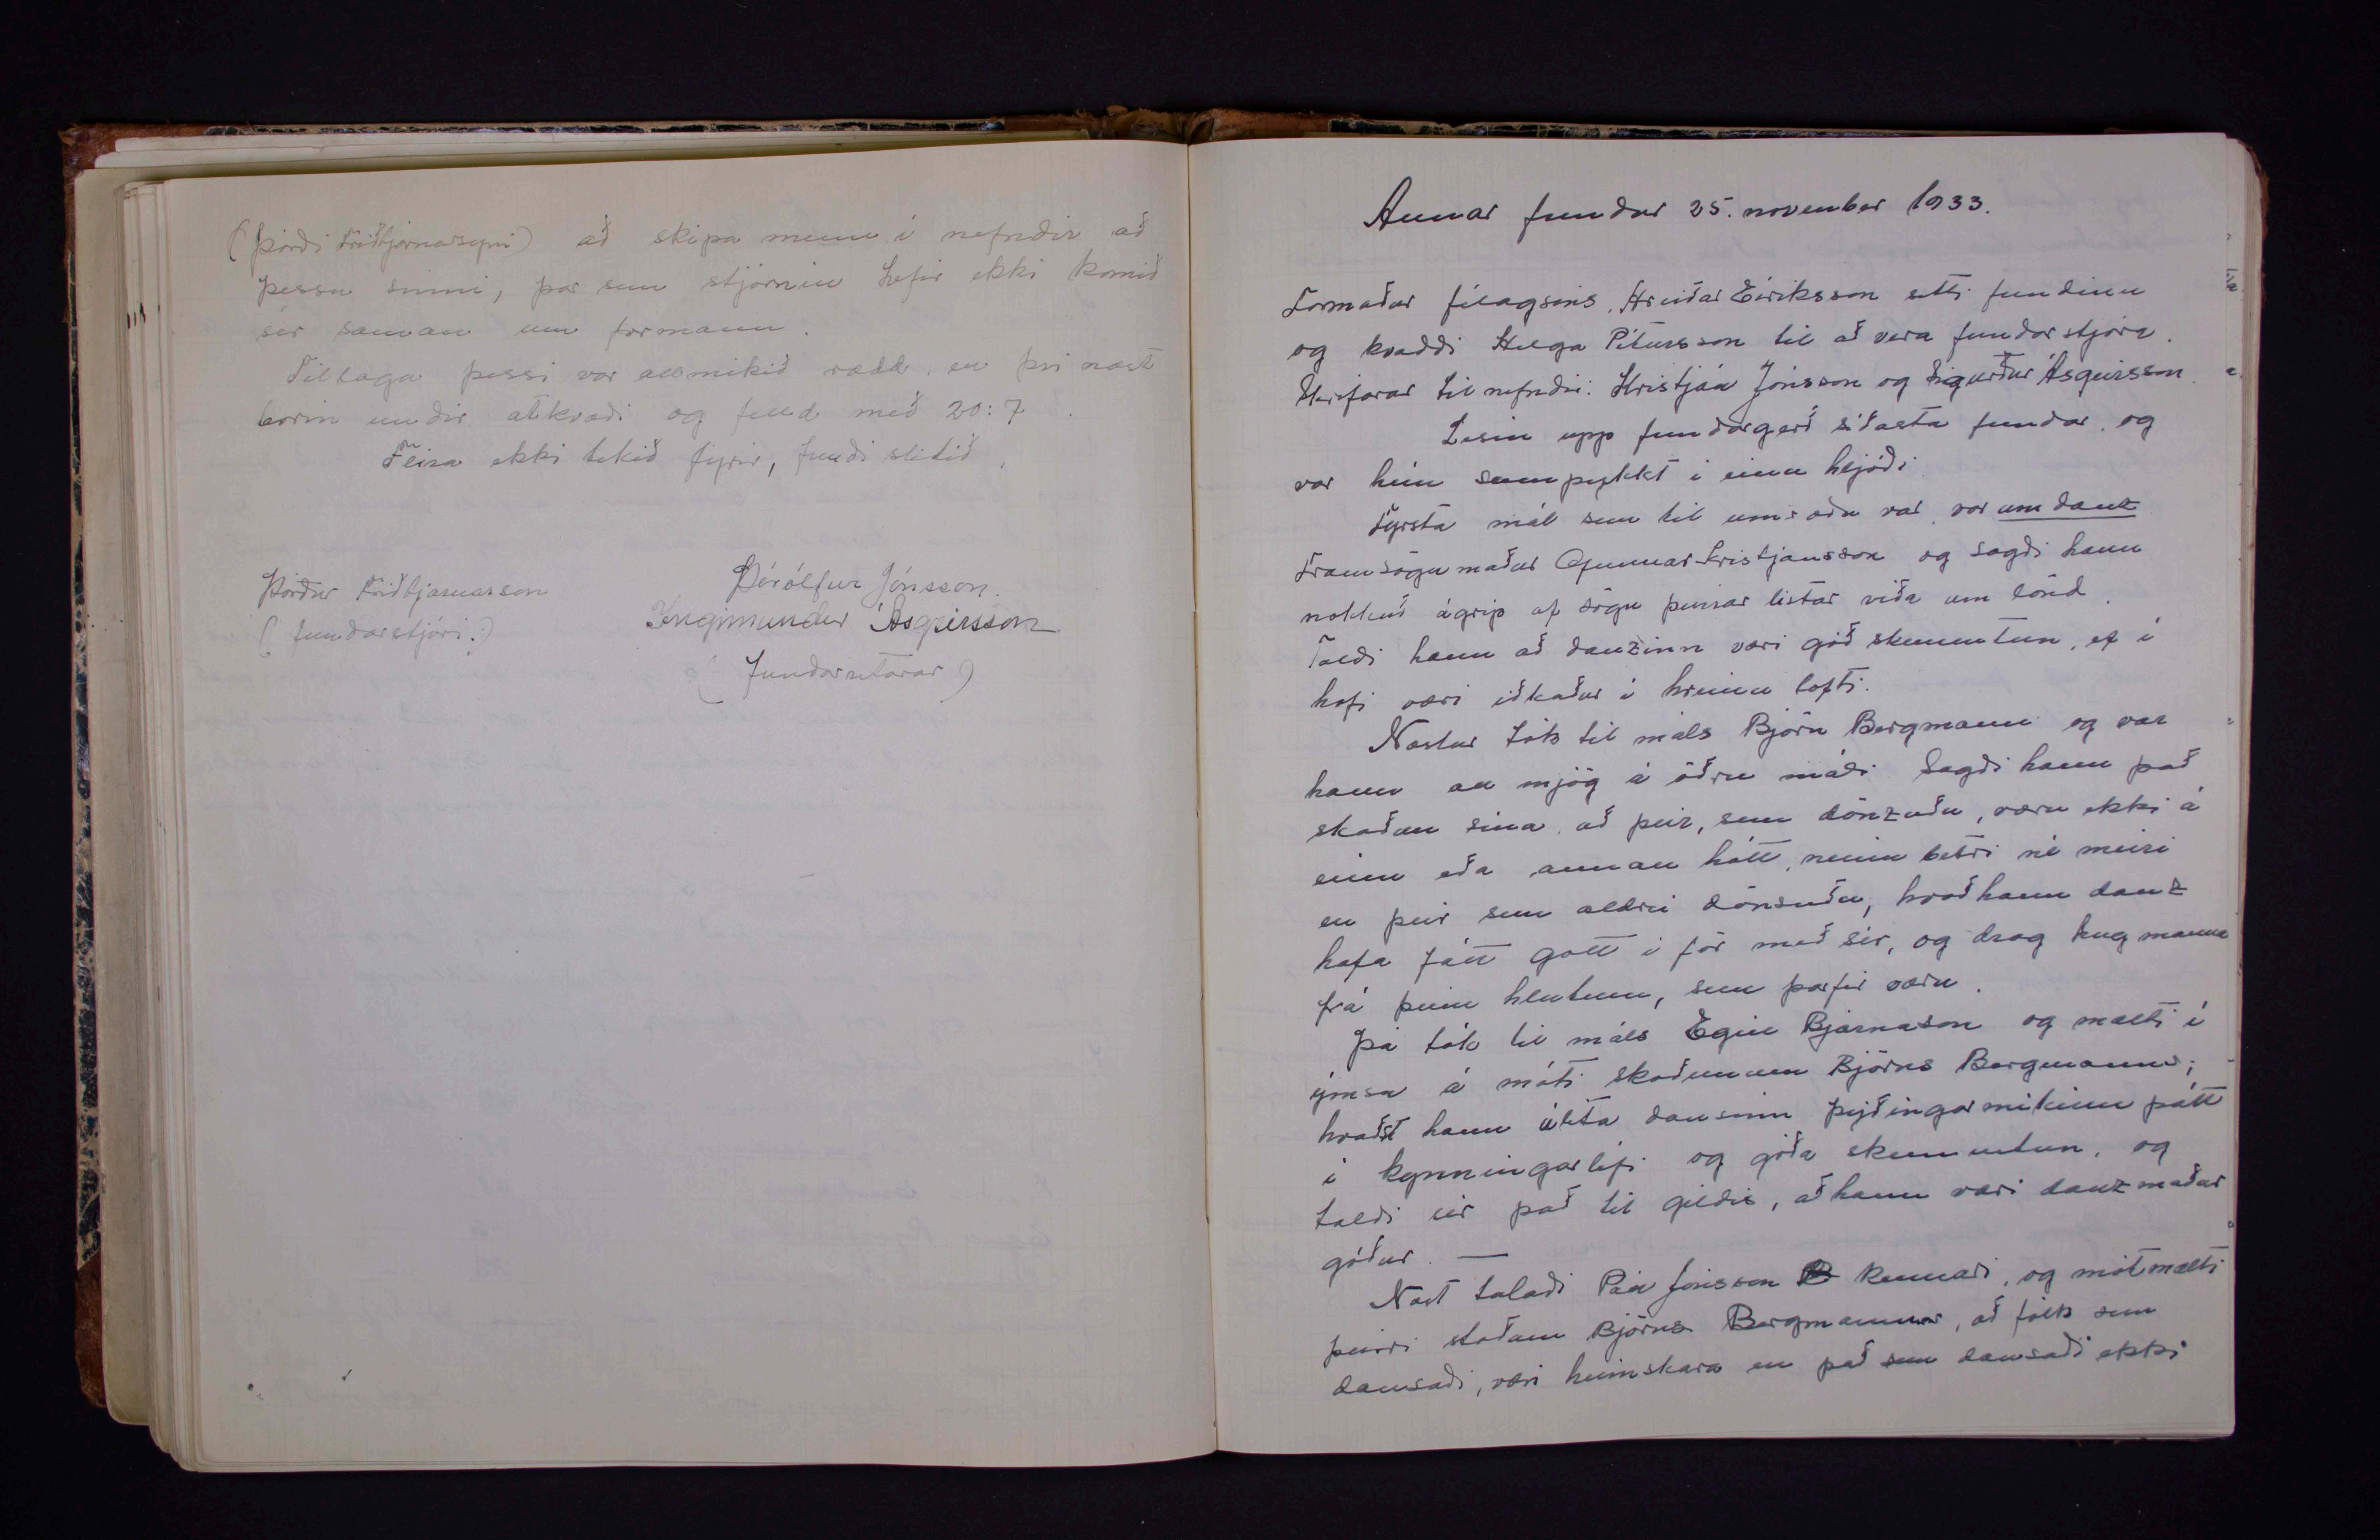 (Þórði Friðbjarnarsyni) að skipa menn í nefndir að
þessu sinni, þar sem stjórnin hefir ekki komið
sér saman um formann.
Tillaga þessi var allmikið rædd, en því næst
borin undir atkvæði og felld með 20:7.
Fleira ekki tekið fyrir, fundi slitið.
Þórður Friðbjarnarson
(fundarstjóri.)
Þórólfur Jónsson.
Ingimundur Ásgeirsson
(fundarritarar)
Annar fundur 25. november 1933.
Formaður félagsins, Hreiðar Eiríksson setti fundinn
og kvaddi Helga Pétursson til að vera fundarstjóra.
Skrifarar tilnefndir: Kristján Jónsson og Sigurður Ásgeirsson.
Lesin upp fundargerð síðasta fundar, og
var hún samþykkt í einu hljóði.
Fyrsta mál sem til umræðu var, var um danz
Framsögumaður Gunnar Kristjánsson og sagði hann
nokkuð ágrip af sögu þeirrar listar víða um lönd.
Taldi hann að danzinn væri góð skemmtun, ef í
hófi væri iðkaður í hreinu lofti.
Næstur tók til máls Björn Bergmann og var
hann á mjög á öðru máli. Sagði hann það
skoðun sína, að þeir, sem dönzuðu, væru ekki á
einn eða annan hátt, neinu betri né meiri
en þeir sem aldrei dönsuðu, kvað hann danz
hafa fátt gott í för með sér, og drag hug manna
frá þeim hlutum, sem þarfir væru.
Þá tók til máls Egill Bjarnason og mælti í
ýmsu á móti skoðunum Björns Bergmanns;
kvaðst hann álíta dansinn þýðingarmikinn þátt
í kynningarlífi og góða skemmtun, og
taldi sér það til gildis, að hann væri danzmaður
góður. —
Næst talaði Páll Jónsson kennari, og mótmælti
þeirri skoðun Björns Bergmanns, að fólk sem
dansaði, væri heimskara en það sem dansaði ekki